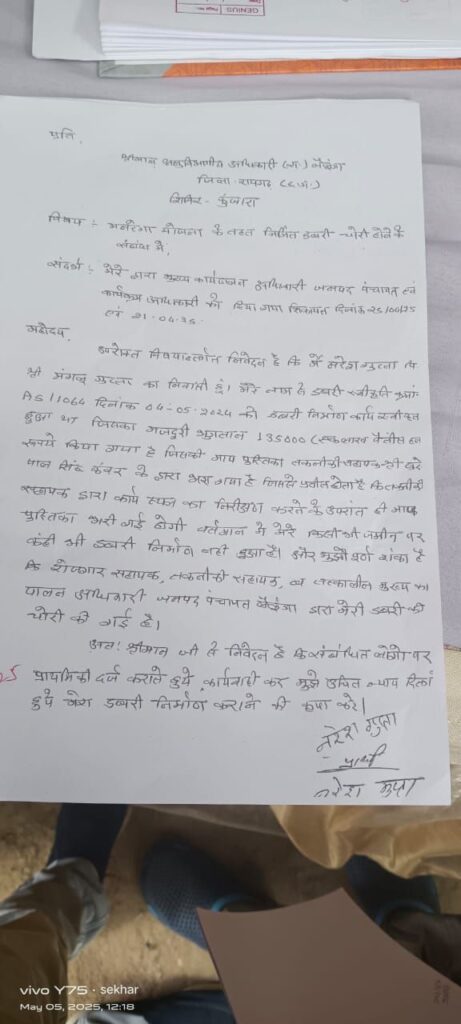 GENIUS
प्रति,
श्रीमान अनुविभागीय अधिकारी (रा.) लैलूंगा
जिला - रायगढ़ (छ.ग.)
शिविर - कुंजारा
विषय :- मनरेगा योजना के तहत निर्मित डबरी चोरी होने के
संबंध में,
संदर्भ :- मेरे द्वारा मुख्य कार्यपालन अधिकारी जनपद पंचायत एवं
कार्यक्रम अधिकारी को दिया गया शिकायत दिनांक
एवं 21.04.25.
महोदय,
उपरोक्त विषयान्तर्गत निवेदन है कि मैं नरेश गुप्ता
श्री मंगल गुप्ता का निवासी हूं। मेरे नाम से डबरी स्वीकृति
AS 11064 दिनांक 04-05-2024 को डबरी निर्माण कार्य स्वीकृत
हुआ था जिसका मजदूरी भुगतान 135000 (एक लाख पैंतीस
रूपये किया गया है जिसकी माप पुस्तिका तकनीकी सहायक श्री
पाल सिंह कंवर के द्वारा भरा गया है जिससे प्रतीत होता है कि तकनीकी
सहायक द्वारा कार्य स्थल का निरीक्षण करने के उपरांत ही माप
पुस्तिका भरी गई होगी वर्तमान में मेरे किसी भी जमीन पर
कहीं भी डबरी निर्माण नहीं हुआ है। और मुझे पूर्ण शंका है
कि रोजगार सहायक, तकनीकी सहायक, व तत्कालीन मुख्य का
पालन अधिकारी जनपद पंचायत लैलूंगा द्वारा मेरी डबरी की
चोरी की गई है।
अतः श्रीमान जी से निवेदन है कि संबंधित लोगों पर
प्राथमिकी दर्ज कराते हुये कार्यवाही कर मुझे उचित न्याय दिलाते
हुये मेरा डबरी निर्माण कराने की कृपा करें।
नरेश गुप्ता
प्रार्थी
नरेश गुप्ता
vivo Y75 · sekhar
May 05, 2025, 12:18